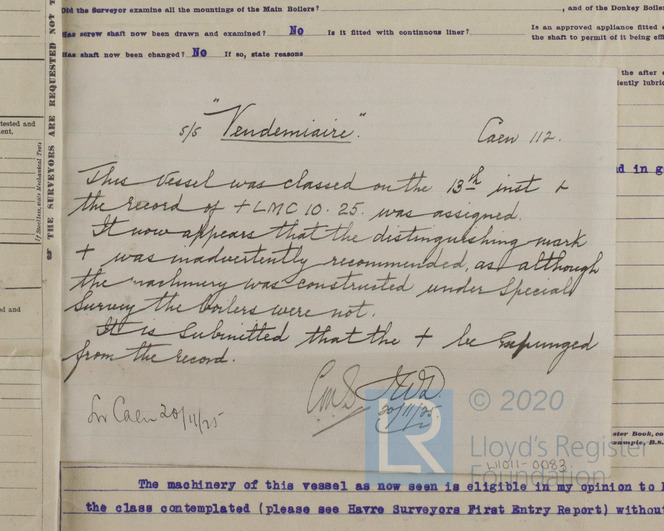 Did the Surveyor examine all the mountings of the Main Boilers?
, and of the Donkey Boiler
Has screw shaft now been drawn and examined? No Is it fitted with continuous liner?
Is an approved appliance fitted
the shaft to permit of it being
Has shaft now been changed? No If so, state reasons
the after
THE SURVEYORS ARE REQUESTED NOT
tested and
S/S "Vendemiaire". Caen 112.
This vessel was classed on the 13th inst &
the record of +LMC 10.25. was assigned.
It now appears that the distinguishing mark
+ was inadvertently recommended, as although
the machinery was constructed under Special
Survey the boilers were not.
It is submitted that the + be expunged
from the record.
20/11/25
Caen 20/11/25
© 2020
LR
Lloyd's Register
Foundation
LH011-0083
The machinery of this vessel as now seen is eligible in my opinion to
the class contemplated (please see Havre Surveyors First Entry Report)